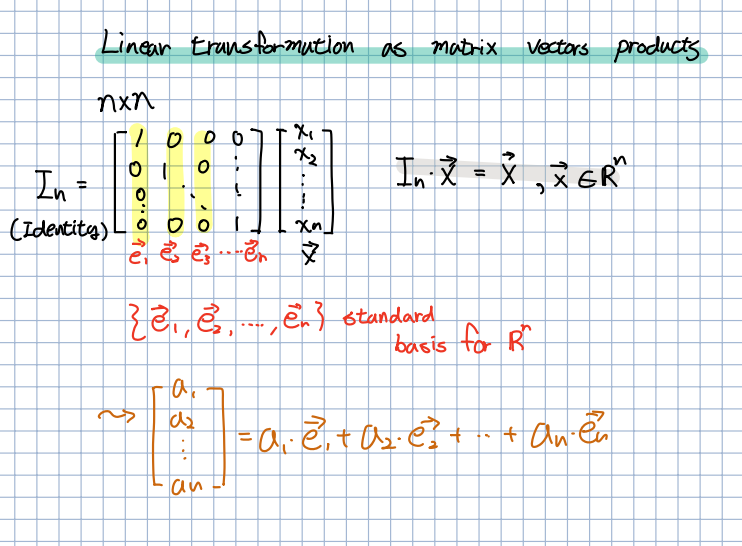 Linear transformation as matrix vectors products
n×n
I_n = [1 0 0 0; 0 1 0 ⋮; 0 ⋱ ⋮; ⋮ ⋱; 0 0 0 1] [x_1; x_2; ⋮; x_n] I_n · x⃗ = x⃗ , x⃗ ∈ R^n
(Identity)
e⃗_1 e⃗_2 e⃗_3 ···· e⃗_n x⃗
{ e⃗_1, e⃗_2, ····, e⃗_n } standard
basis for R^n
⇝ [a_1; a_2; ⋮; a_n] = a_1 · e⃗_1 + a_2 · e⃗_2 + ·· + a_n · e⃗_n